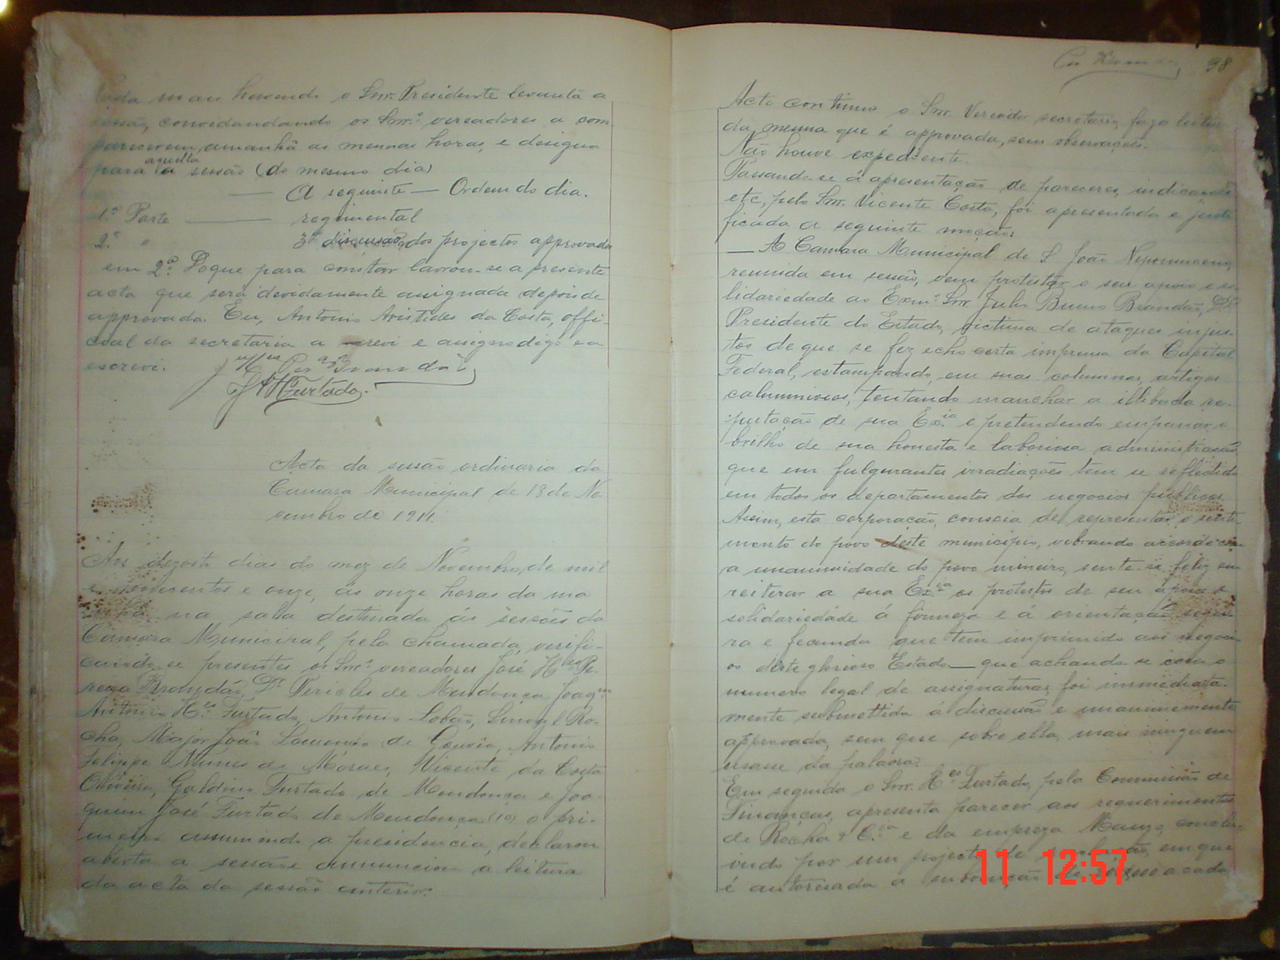 mais havendo o Snr. Presidente levanta a
sessão, concordandando os Snrs. vereadores a com
parecerem, amanhã as mesmas horas, e designa
para aquella sessão (do mesmo dia)
— A seguinte — Ordem do dia.
1ª Parte — regimental
2ª " 3ª discussão dos projectos approvados
em 2ª. Do que para constar lavrou-se a presente
acta que será devidamente assignada depois de
approvada. Eu, Antonio Aristides da Costa, offi-
cial da secretaria a escrevi e assigno digo eu
escrevi.
Furtado
Acta da sessão ordinaria da
Camara Municipal de 18 de No
vembro de 1911.
Aos dezoito dias do mez de Novembro, de mil
e novecentos e onze, ás onze horas da ma
nhã na sala destinada ás sessões da
Camara Municipal, pela chamada, verifi-
cando-se presentes os Snrs. vereadores José
Brandão, Dr. Pericles de Mendonça, Joaqm
Antonio Furtado, Antonio Lobão, Ro-
cha, Major João de Gouvêa, Antonio
Felippe Nunes de Moraes, Vicente da Costa
Oliveira, Galdino Furtado de Mendonça e Joa-
quim José Furtado de Mendonça (10) o pri-
meiro assumindo a presidencia, declarou
aberta a sessão e annunciou a leitura
da acta da sessão anterior.
98
Acto continuo o Snr. Vereador secretario faz a leitu
da mesma que é approvada, sem observações.
Não houve expediente.
Passando-se á apresentação de pareceres, indicações
etc, pelo Snr. Vicente Costa, foi apresentada e justi
ficada a seguinte moção:
— A Camara Municipal de S. João Nepomuceno,
reunida em sessão, vem protestar o seu apoio e so
lidariedade ao Exmo. Snr. Julio Bueno Brandão, DD.
Presidente do Estado, victima de ataques injus-
tos de que se fez echo certa imprensa da Capital
Federal, estampando, em suas columnas, artigos
calumniosos, tentando manchar a illibada re-
putação de sua Excia. e pretendendo empanar o
brilho de sua honesta e laboriosa administração,
que em fulgurantes irradiações tem se reflectido
em todos os departamentos dos negocios publicos.
Assim, esta corporação, conscia de representar o senti-
mento do povo deste municipio, vibrando
a unanimidade do povo mineiro, sente-se feliz em
reiterar a sua Excia. os protestos de seu apoio e
solidariedade á firmeza e á orientação segu-
ra e fecunda que tem imprimido aos negoci
os deste glorioso Estado — que achando-se com o
numero legal de assignaturas, foi immediata-
mente submettida á discussão e unanimemente
approvada, sem que sobre ella, mais ninguem
usasse da palavra.
Em seguida o Snr. Furtado, pela Commissão de
Finanças, apresenta parecer aos requerimentos
de Rocha & Cia. e da empreza conclu-
indo por um projecto de em que
é autorisada a a cada
11 12:57